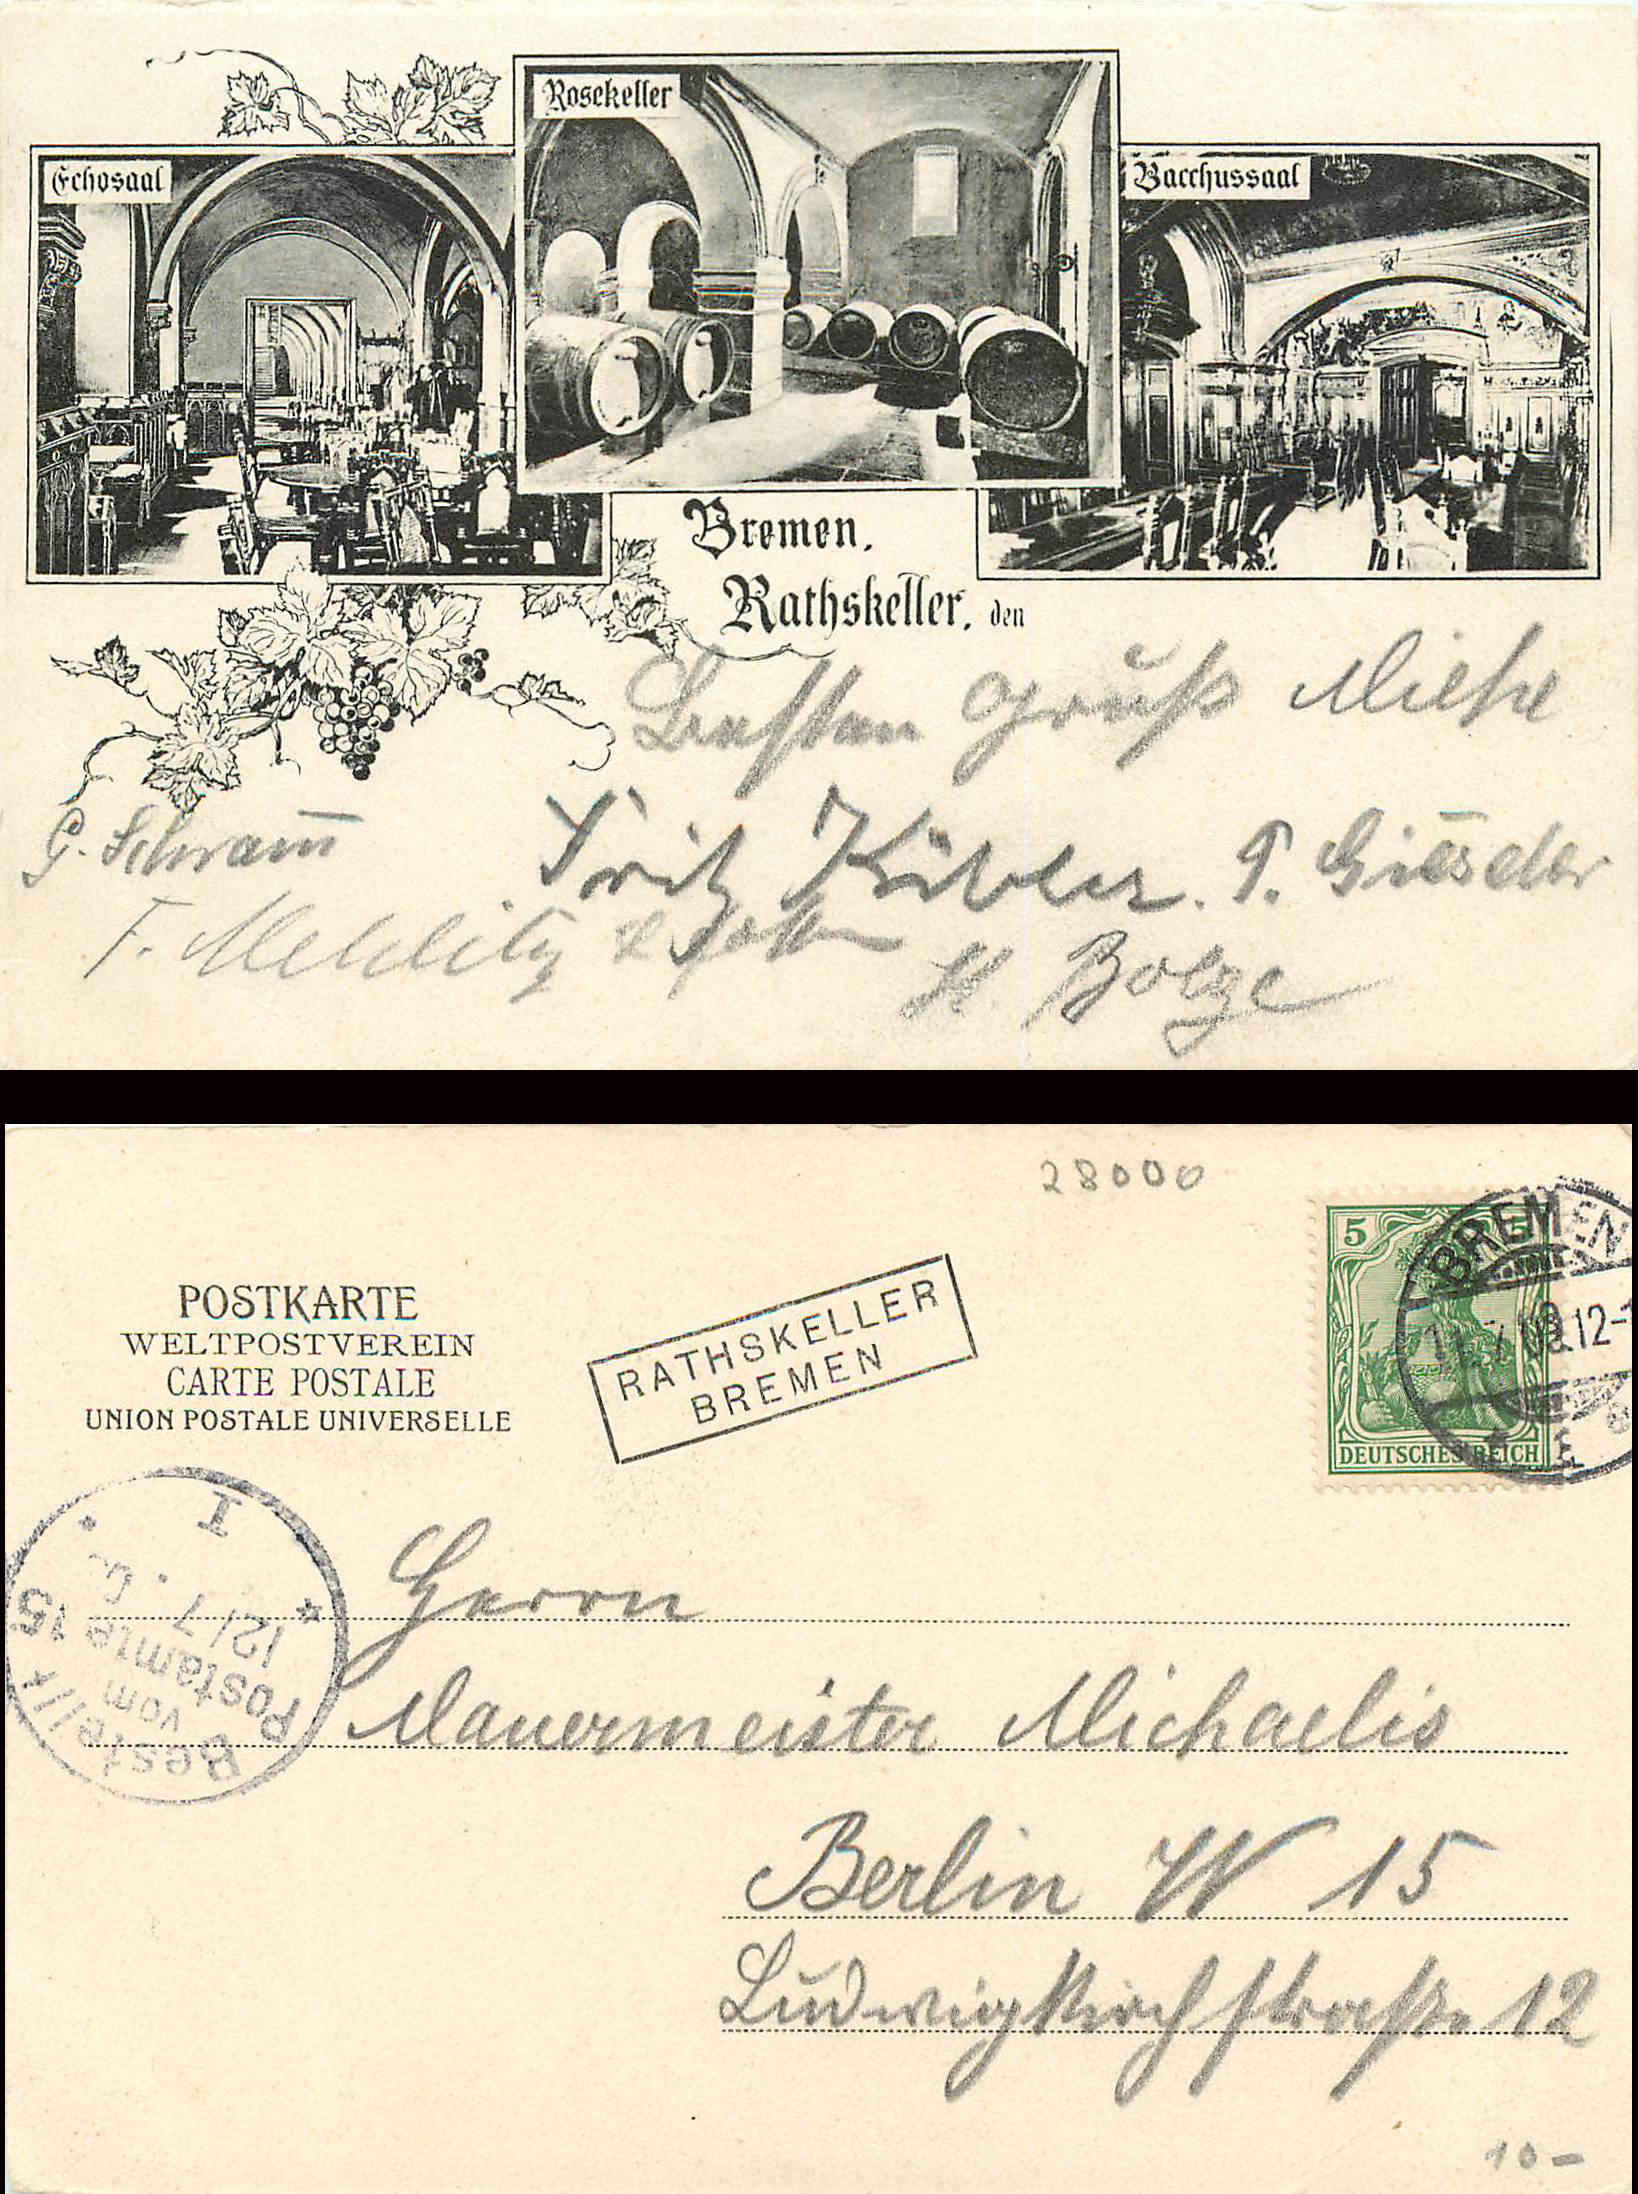 Rosekeller
Echosaal
Bacchussaal
Bremen,
Rathskeller, den
Besten Gruß
G. Schram̅
Fritz Kübler. P. Gieseler
F.
H. Bolze
28000
5 5
DEUTSCHES REICH
BREMEN
7 12-1
POSTKARTE
WELTPOSTVEREIN
CARTE POSTALE
UNION POSTALE UNIVERSELLE
RATHSKELLER
BREMEN
Bestellt
vom
Postamte 15
12/7.
I
Herrn
Mauermeister Michaelis
Berlin W 15
Ludwigkirchstraße 12
10-